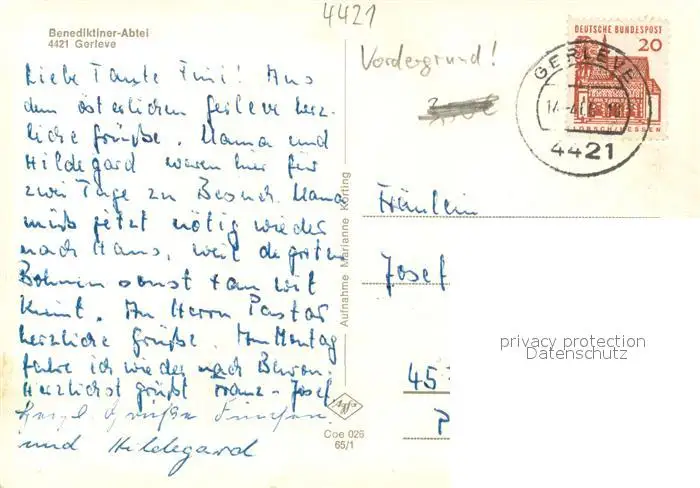 4421
Benediktiner-Abtei
4421 Gerleve
Vordergrund!
DEUTSCHE BUNDESPOST
20
LORSCH/HESSEN
GERLEVE
4421
Liebe Tante Fini! Aus
dem österlichen Gerleve herz-
liche Grüße. Mama und
Hildegard waren hier für
zwei Tage zu Besuch. Mama
muß jetzt nötig wieder
nach Haus, weil
Bohnen sonst
An Herrn Pastor
herzliche Grüße. Am Montag
fahre ich wieder nach
Herzlichst grüßt Franz-Josef
Grüße
und Hildegard
Aufnahme Marianne Körting
Agfa
Coe 026
65/1
Fräulein
Josef
45
privacy protection
Datenschutz